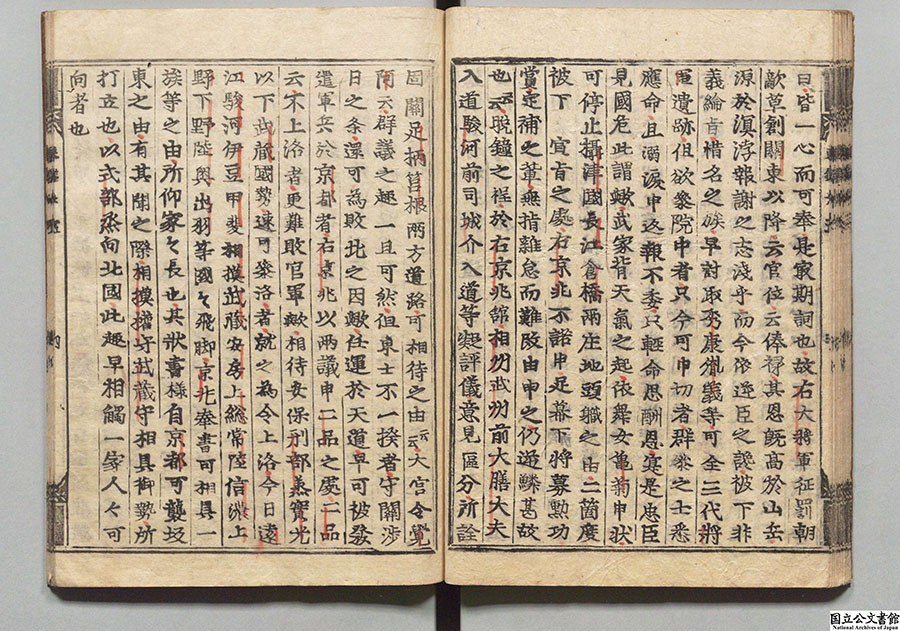 曰皆一心而可奉是最期詞也故右大將軍征罰朝
敵草創關東以降云官位云俸祿其恩既高於山岳
深於溟渤報謝之志淺乎而今依逆臣之讒被下非
義綸旨惜名之族早討取秀康胤義等可全三代將
軍遺跡但欲參院中者只今可申切者群參之士悉
應命且溺淚申返報不委只輕命思酬恩寔是忠臣
見國危此謂歟武家背天氣之起依舞女亀菊申狀
可停止攝津國長江倉橋兩庄地頭職之由二箇度
被下 宣旨之處右京兆不諾申是幕下將募勲功
賞定補之輩無指雜怠而難改由申之仍逆鱗甚故
也云云晩鐘之程於右京兆舘相州武州前大膳大夫
入道駿河前司城介入道等凝評儀意見區分所詮
固關足柄筥根兩方道路可相待之由云云大官令覺
阿云群議之趣一旦可然但東士不一揆者守關渉
日之条還可為敗北之因歟任運於天道早可被發
遣軍兵於京都者右京兆以兩議申二品之處二品
云不上洛者更難敗官軍歟相待安保刑部丞實光
以下武蔵國勢速可參洛者就之為令上洛今日遠
江駿河伊豆甲斐相摸武蔵安房上総常陸信濃上
野下野陸奥出羽等國々飛脚京兆奉書可相具一
族等之由所仰家々長也其狀書様自京都可襲坂
東之由有其聞之際相摸權守武蔵守相具御勢所
打立也以式部丞向北國此趣早相觸一家人々可
向者也
国立公文書館
National Archives of Japan